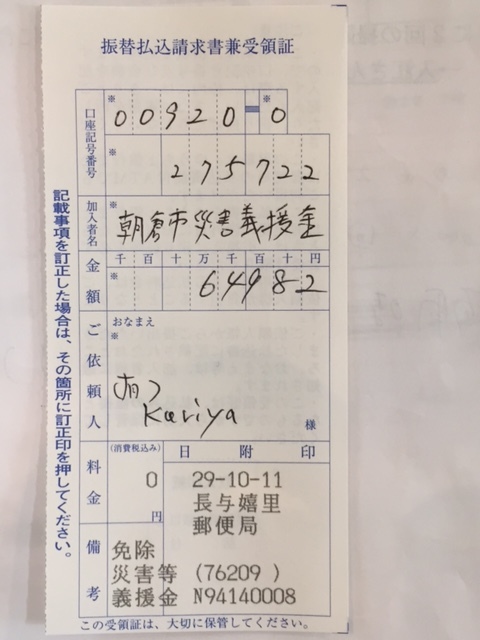 振替払込請求書兼受領証
口座記号番号
※
00920-0
※
275722
加入者名
※
朝倉市災害義援金
金額
千百十万千百十円
※
64982
ご依頼人
おなまえ
※
Kariya
様
料金
(消費税込み)
0
円
日附印
29-10-11
長与嬉里
郵便局
備考
免除
災害等 (76209 )
義援金 N94140008
記載事項を訂正した場合は、その箇所に訂正印を押してください。
この受領証は、大切に保管してください。